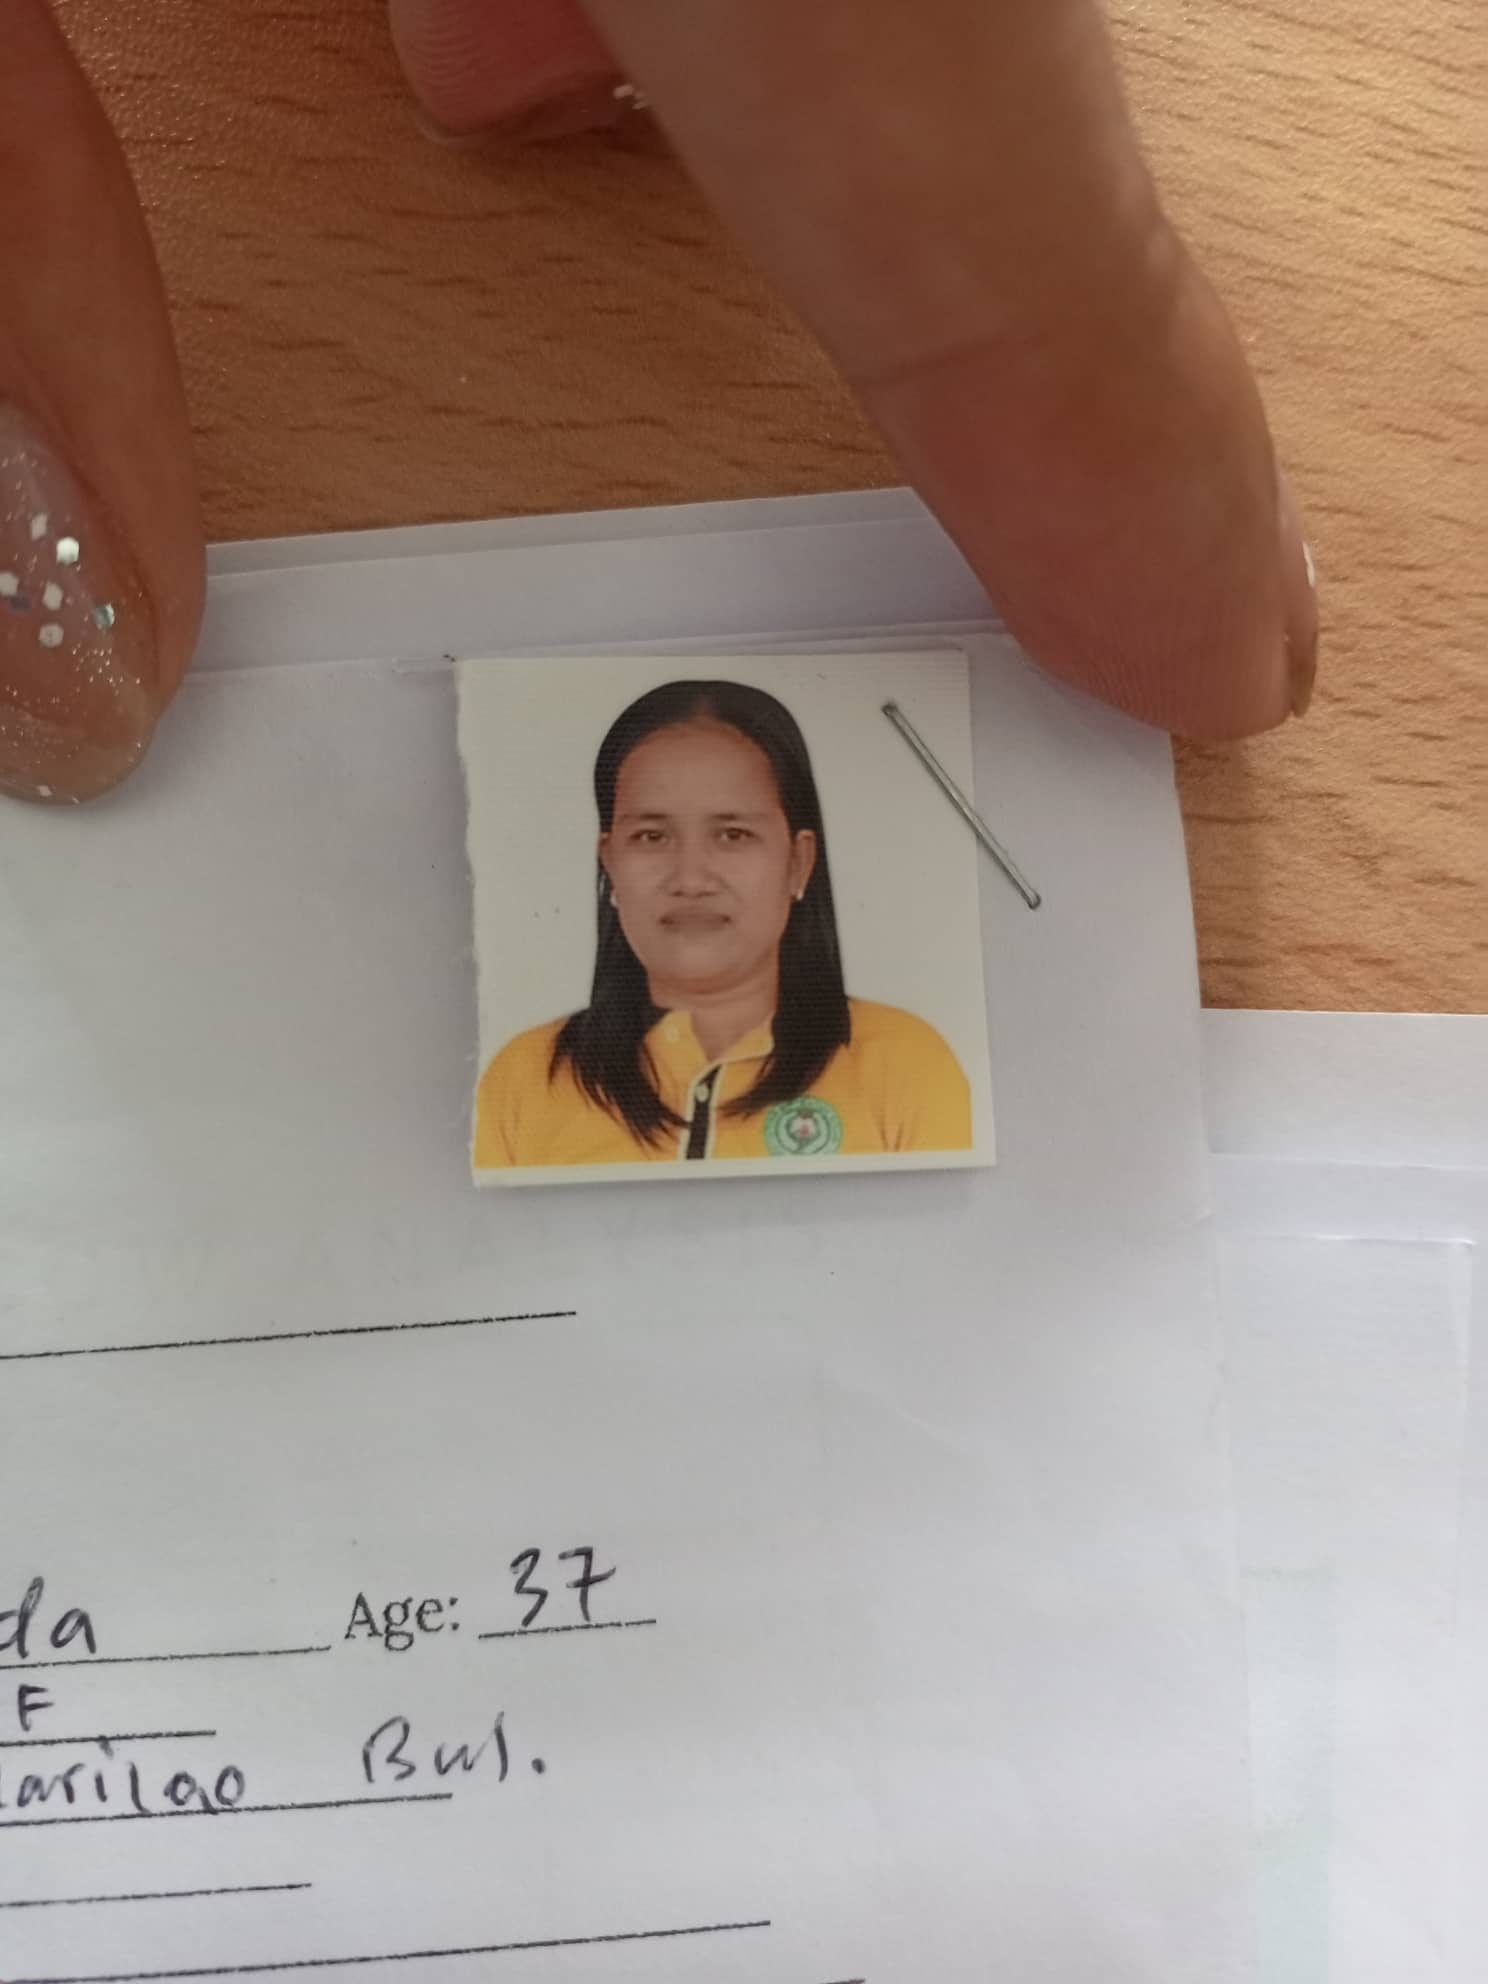 da Age: 37
F
arilao Bul.